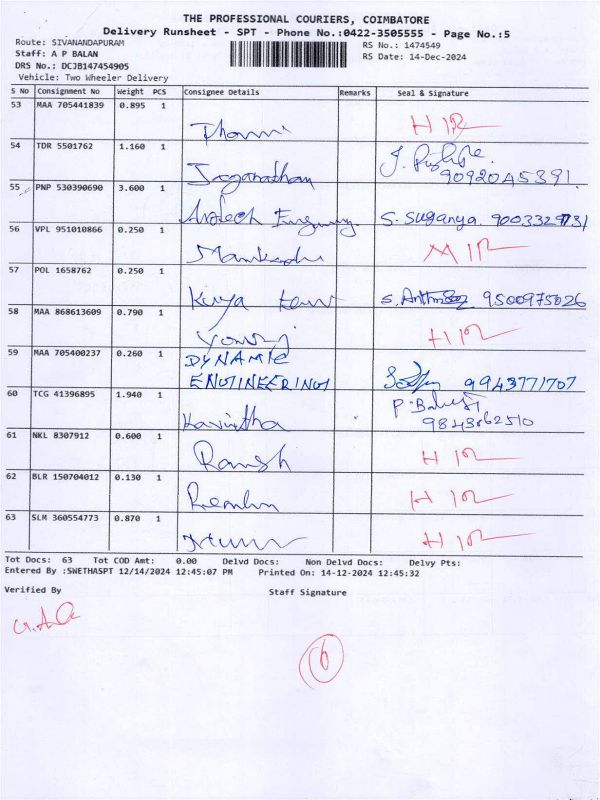 THE PROFESSIONAL COURIERS, COIMBATORE
Delivery Runsheet - SPT - Phone No.:0422-3505555 - Page No.:5
Route: SIVANANDAPURAM
RS No.: 1474549
Staff: A P BALAN
RS Date: 14-Dec-2024
DRS No.: DCJB147454905
Vehicle: Two Wheeler Delivery
S No Consignment No Weight PCS Consignee Details Remarks Seal & Signature
53 MAA 705441839 0.895 1
H
54 TDR 5501762 1.160 1
Jaganathan
55 PNP 530390690 3.600 1
S. Suganya.
56 VPL 951010866 0.250 1
57 POL 1658762 0.250 1
9500975026
58 MAA 868613609 0.790 1
H
59 MAA 705400237 0.260 1
DYNAMIC
ENGINEERING 9943771707
60 TCG 41396895 1.940 1
Kavintha
61 NKL 8307912 0.600 1
Ramsh H
62 BLR 150704012 0.130 1
H
63 SLM 360554773 0.870 1
H
Tot Docs: 63 Tot COD Amt: 0.00 Delvd Docs: Non Delvd Docs: Delvy Pts:
Entered By :SWETHASPT 12/14/2024 12:45:07 PM Printed On: 14-12-2024 12:45:32
Verified By Staff Signature
6